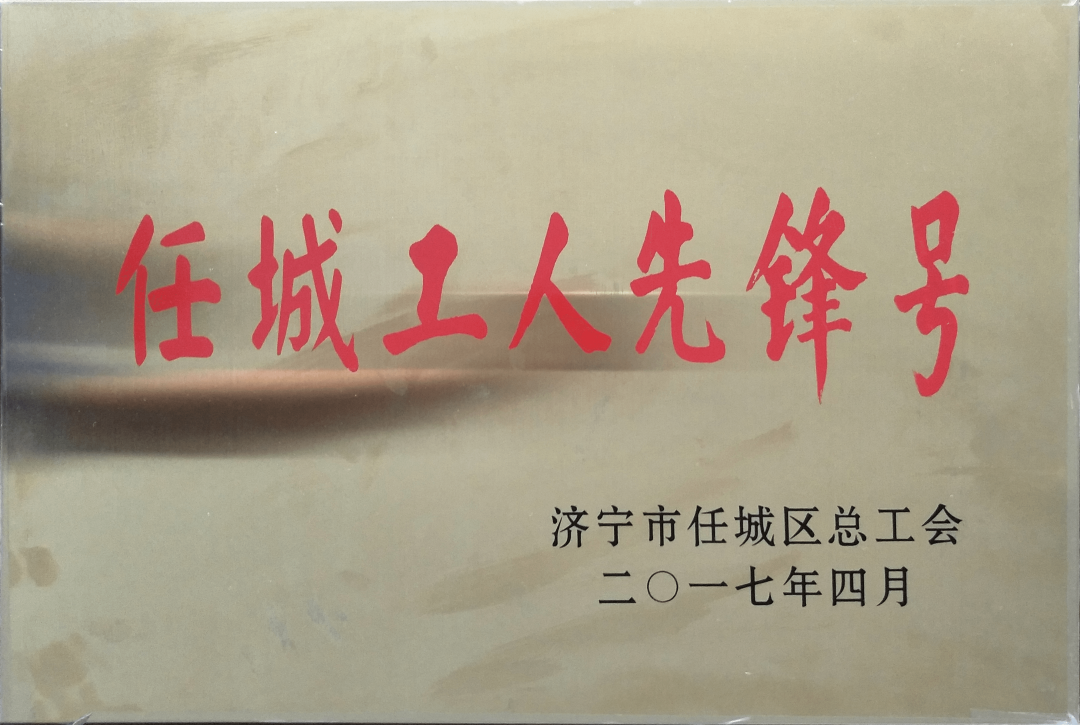 任城工人先锋号
济宁市任城区总工会
二〇一七年四月